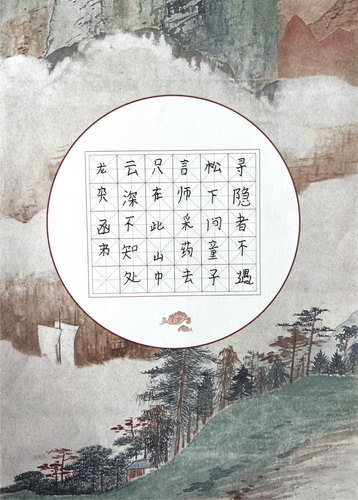 寻隐者不遇
松下问童子
言师采药去
只在此山中
云深不知处
龙奕函书